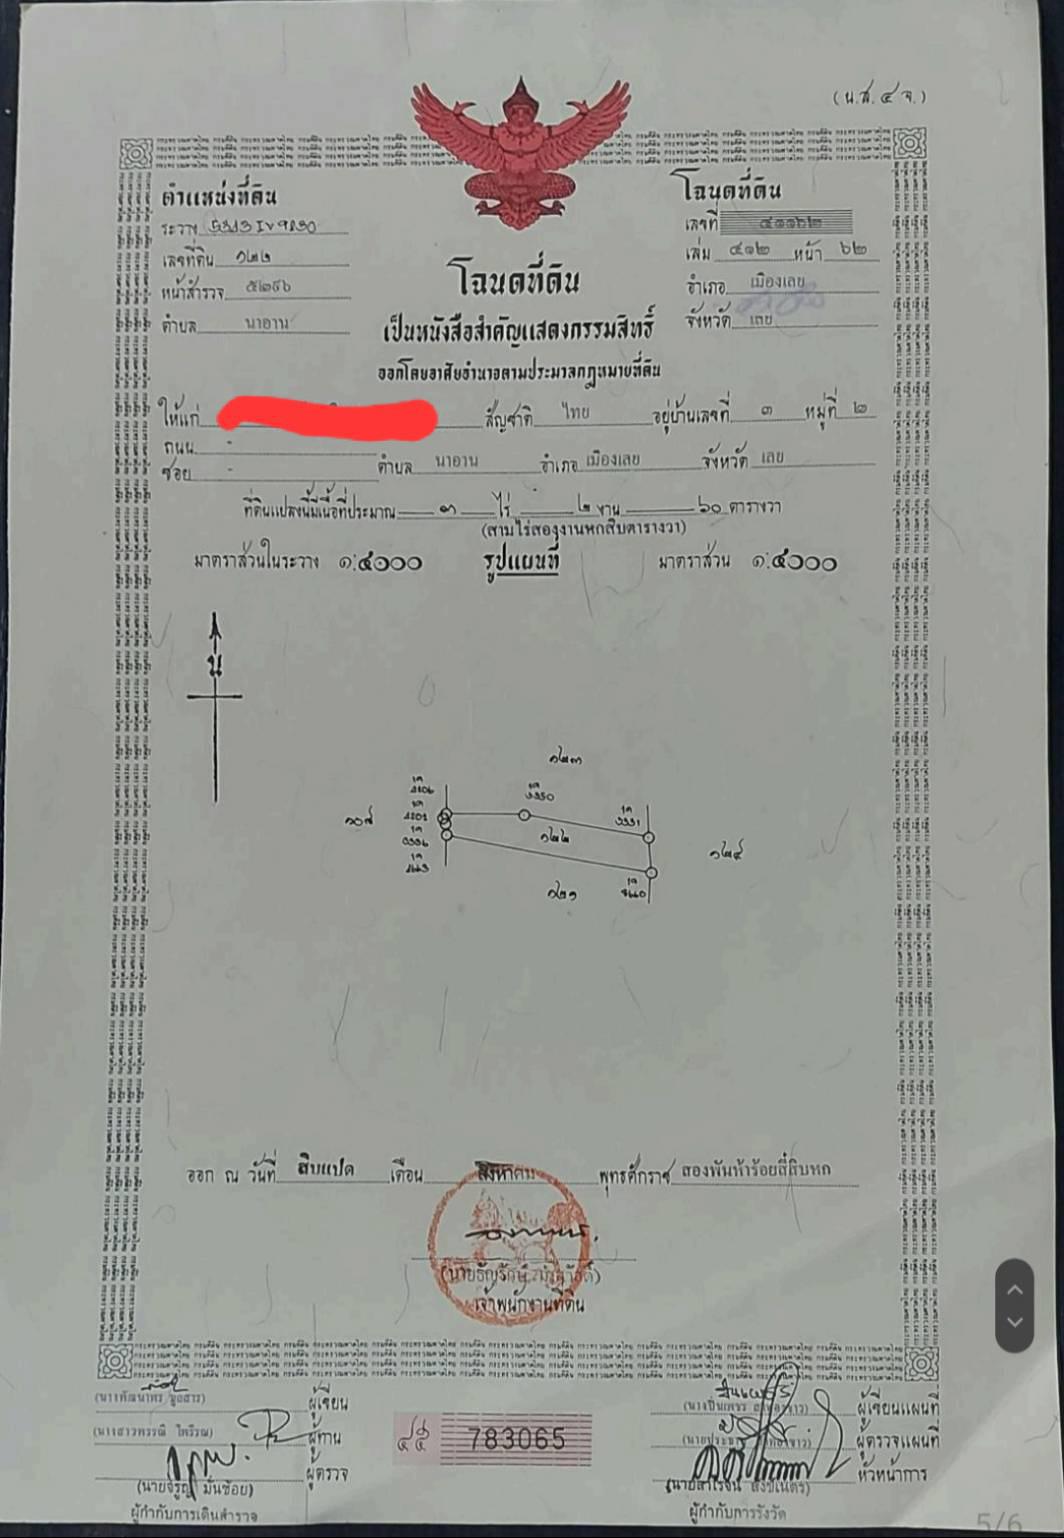 (น.ส. ๔ จ.)
ตำแหน่งที่ดิน
ระวาง 5343 IV 9230
เลขที่ดิน ๑๒๒
หน้าสำรวจ ๕๒๙๖
ตำบล นาอาน
โฉนดที่ดิน
เลขที่ ๔๑๑๖๒
เล่ม ๔๑๒ หน้า ๖๒
อำเภอ เมืองเลย
จังหวัด เลย
โฉนดที่ดิน
เป็นหนังสือสำคัญแสดงกรรมสิทธิ์
ออกโดยอาศัยอำนาจตามประมวลกฎหมายที่ดิน
ให้แก่ สัญชาติ ไทย อยู่บ้านเลขที่ ๓ หมู่ที่ ๒
ถนน -
ซอย - ตำบล นาอาน อำเภอ เมืองเลย จังหวัด เลย
ที่ดินแปลงนี้มีเนื้อที่ประมาณ ๓ ไร่ ๒ งาน ๖๐ ตารางวา
(สามไร่สองงานหกสิบตารางวา)
มาตราส่วนในระวาง ๑:๔๐๐๐ รูปแผนที่ มาตราส่วน ๑:๔๐๐๐
น
๑๒๓
๑๒๒
๑๒๔
๑๒๑
ออก ณ วันที่ สิบแปด เดือน สิงหาคม พุทธศักราช สองพันห้าร้อยสี่สิบหก
เจ้าพนักงานที่ดิน
ผู้เขียน
ผู้ทาน
ผู้ตรวจ
(นายจรูญ มั่นช้อย)
ผู้กำกับการเดินสำรวจ
783065
ผู้เขียนแผนที่
ผู้ตรวจแผนที่
หัวหน้าการ
ผู้กำกับการรังวัด
5/6